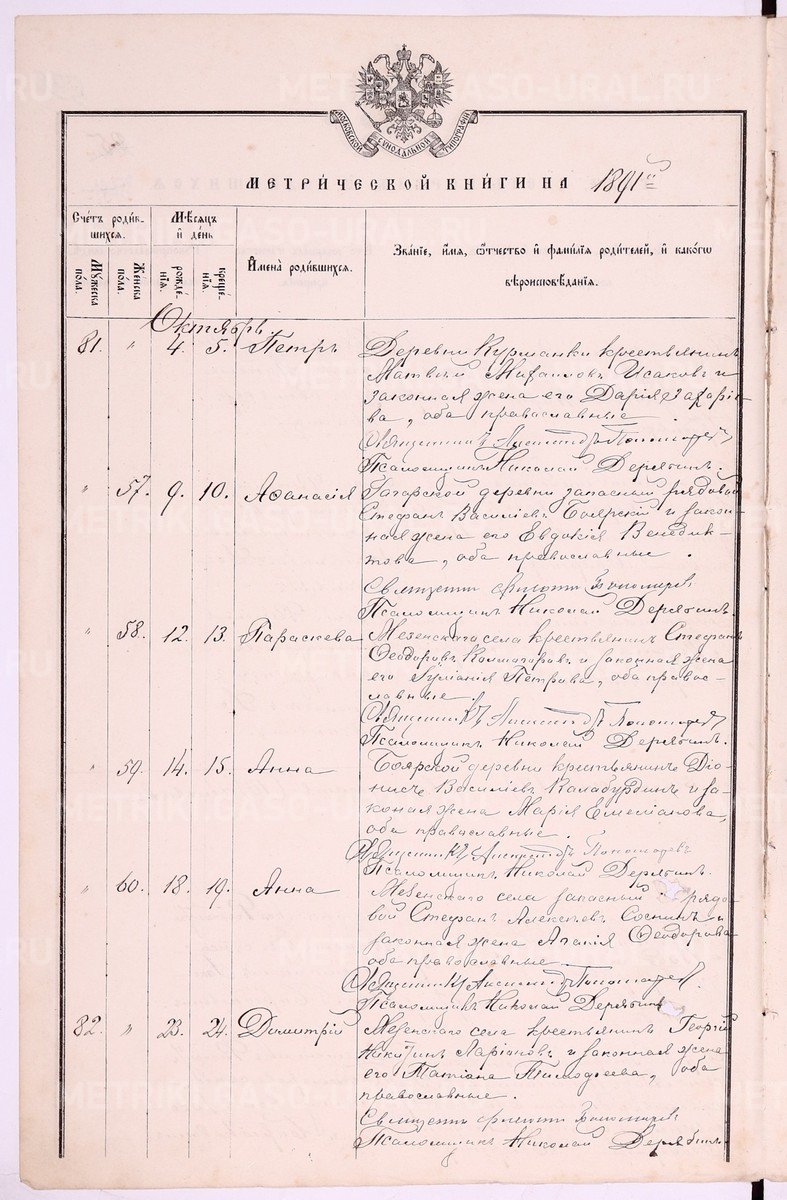 МОСКОВСКОЙ СѴНОДАЛЬНОЙ ТИПОГРАФІИ
МЕТРИ́ЧЕСКОЙ КНИ́ГИ НА 1891й
Сче́тъ роди́в-
шихся.
Мѣ́сяцъ
и҆ де́нь
Мꙋ́жеска
по́ла.
Же́нска
по́ла.
рожде́-
нїѧ.
креще́-
нїѧ.
И҆мена̀ роди́вшихся.
Зва́нїе, и҆́мѧ, ѻ҆́тчество и҆ фами́лїѧ роди́телей, и҆ како́гѡ
вѣроисповѣ́данїѧ.
Октябрь
81. " 4. 5. Петръ Деревни Курманки крестьянинъ
Матвѣй Михаиловъ Исаковъ и
законная жена его Дарія Захаріе-
ва, оба православные.
Священникъ Александръ Пономаревъ
Псаломщикъ Николай Дерябинъ.
" 57. 9. 10. Аѳанасія Гагарской деревни запасный рядовой
Стефанъ Василіевъ Боярскій и закон-
ная жена его Евдокія Венедик-
това, оба православные.
Пономаревъ
Псаломщикъ Николай Дерябинъ.
" 58. 12. 13. Параскева Мезенскаго села крестьянинъ Стефанъ
Ѳеодоровъ Колмогоровъ и законная жена
его Іуліанія Петрова, оба право-
славные.
Священникъ Александръ Пономаревъ
Псаломщикъ Николай Дерябинъ.
" 59. 14. 15. Анна Боярской деревни крестьянинъ Діо-
нисъ Василіевъ Калабурдинъ и за-
коная жена Марія Емеліанова,
оба православные.
Священникъ Александръ Пономаревъ
Псаломщикъ Николай Дерябинъ.
" 60. 18. 19. Анна Мезенскаго села запасный рядо-
вой Стефанъ Алексѣевъ Соснинъ и
законная жена Агапія Ѳеодорова
оба православные
Священникъ Александръ Пономаревъ.
Псаломщикъ Николай Дерябинъ
82. " 23. 24. Димитрій Мезенскаго села крестьянинъ Георгій
Никитинъ Ларіоновъ и законная жена
его Татіана Тимоѳеева, оба
православные.
Пономаревъ
Псаломщикъ Николай Дерябинъ.